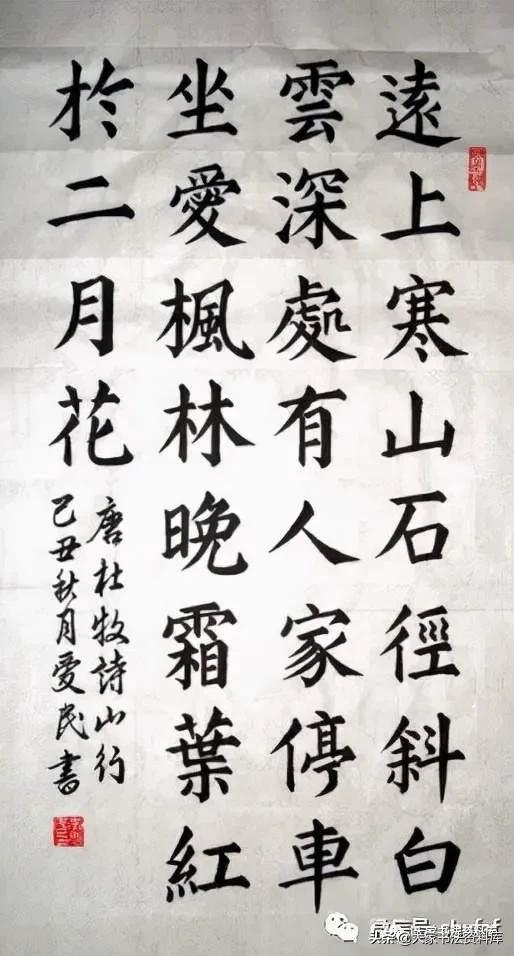 遠上寒山石徑斜白
雲深處有人家停車
坐愛楓林晚霜葉紅
於二月花
唐杜牧詩山行
己丑秋月愛民書
头条@大家书法资料库